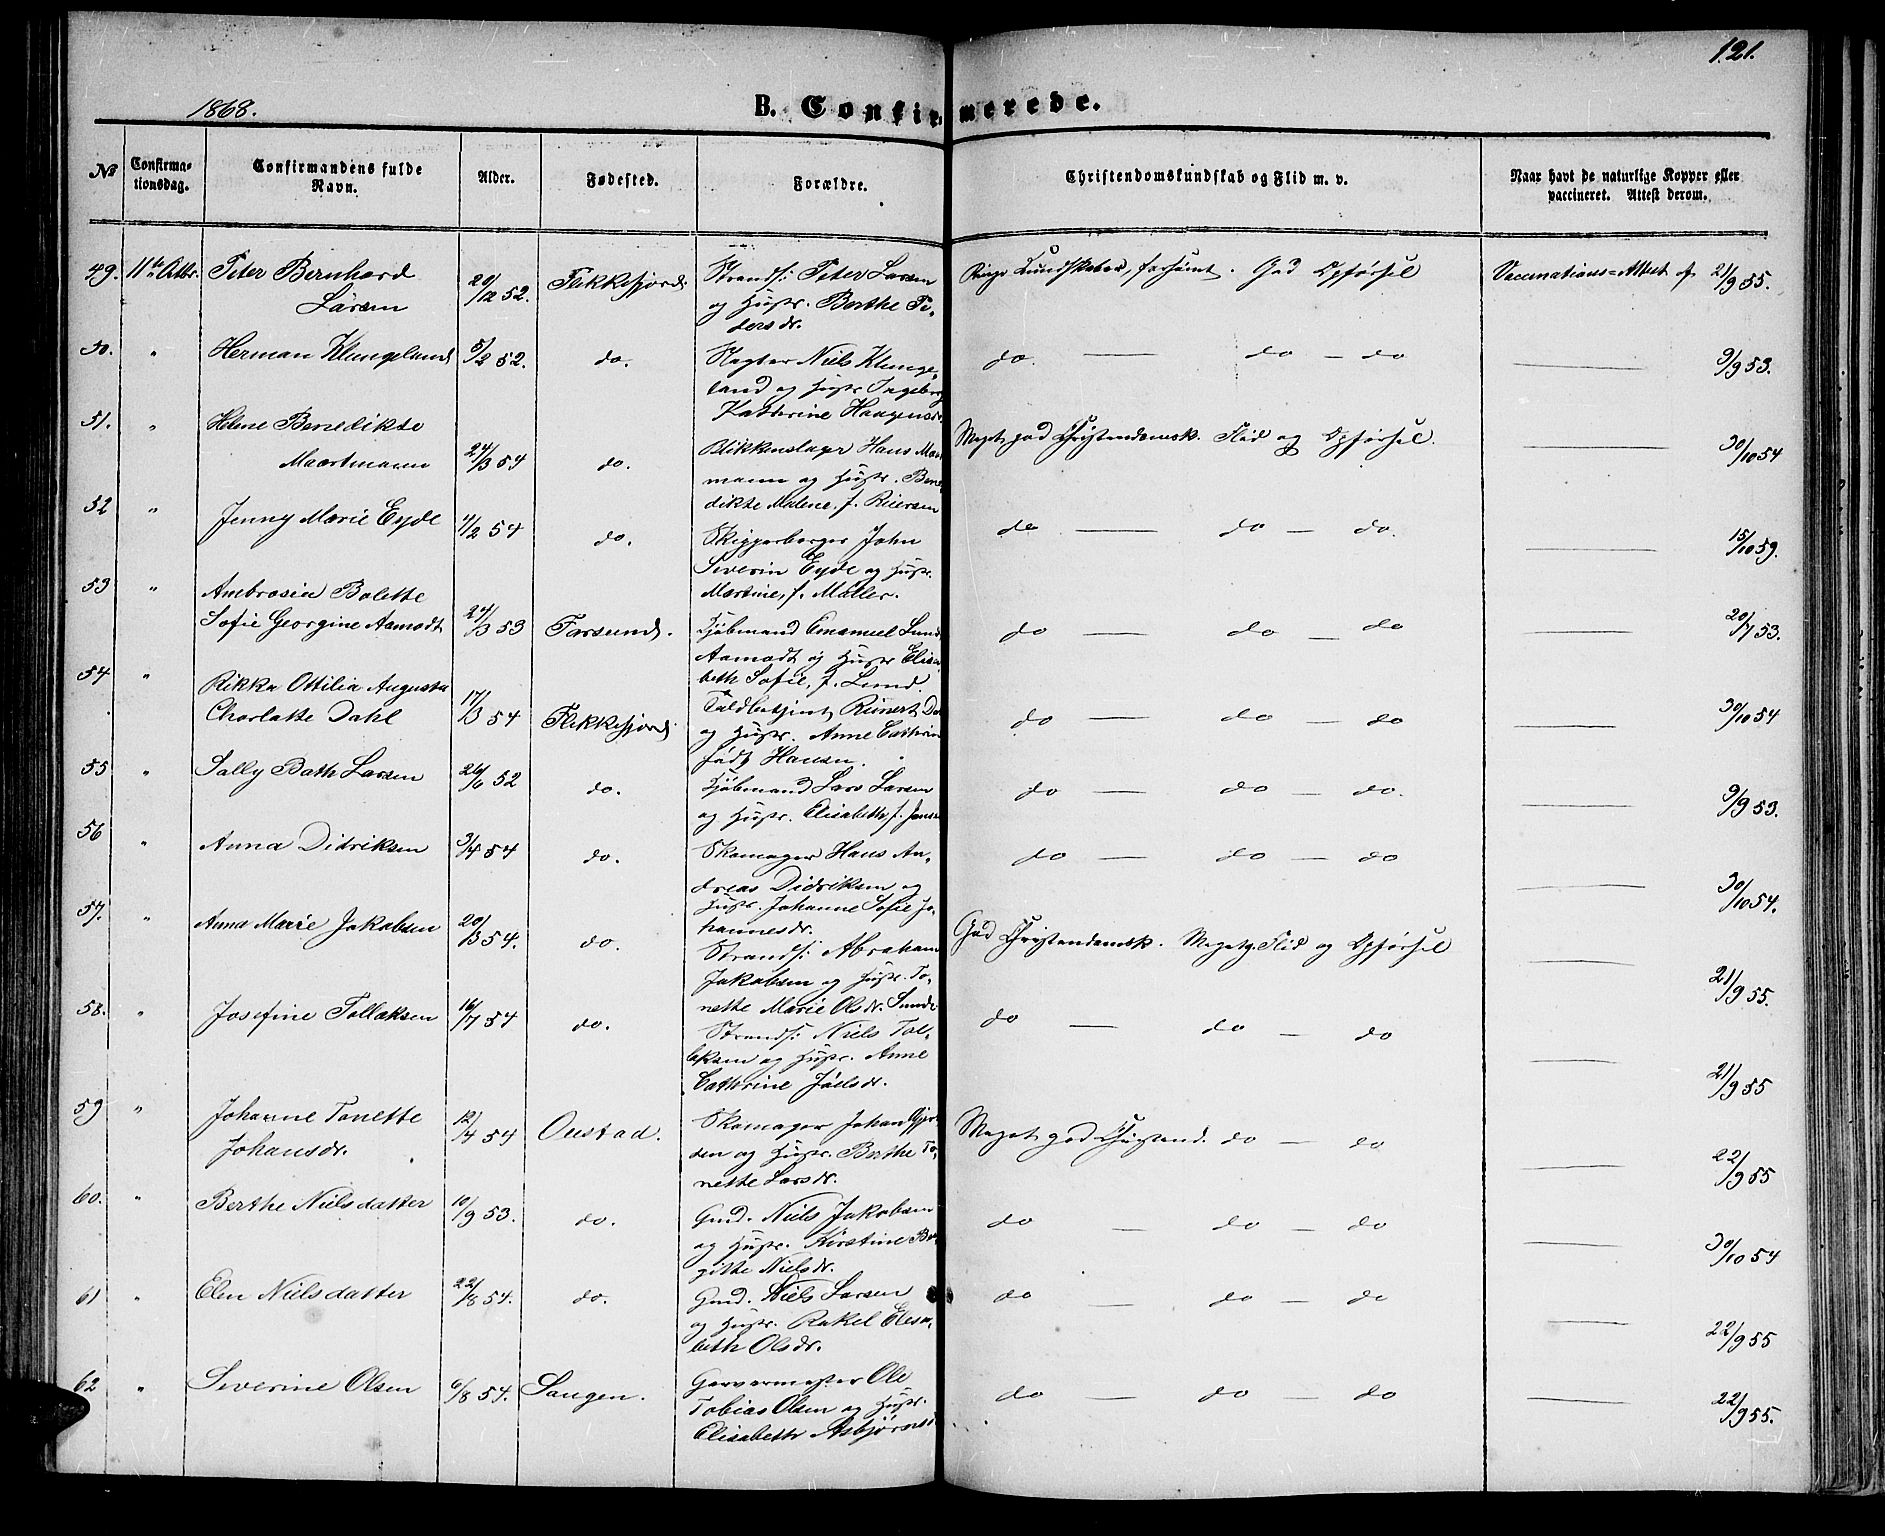 121.
1868.
B. Confirmerede.
No
Confirma-
tionsdag.
Confirmandens fulde
Navn.
Alder.
Fødested.
Forældre.
Christendomskundskab og Flid m. v.
Naar havt de naturlige Kopper eller
vaccineret. Attest derom.
49. 11te Octbr. Peter Bernhard
Larsen
20/12 52. Flekkefjord.
Strands: Peter Larsen
og Hustr. Berthe Pe-
dersdr.
Ringe Kundskaber, forsømt. God Opførsel
Vaccinations-Attest af 21/9 55.
50. " Herman Klungeland 5/2 52. do.
Slagter Niels Klunge-
land og Hustr. Ingeborg
Kathrine Haagensdr.
do. — do — do
— 9/9 53.
51. " Helene Benedikte
Maartmann 24/3 54 do.
Blikkenslager Hans
mann og Hustr. Bene-
dikte Malene, f. Reiersen
Meget god Christendomsk. Flid og Opførsel.
30/10 54
52 " Jenny Marie Eyde 4/2 54 do.
Skipperborger John
Severin Eyde og Hustr.
Martine, f. Møller.
do — do — do.
— 15/10 59.
53 " Ambrosia Bolette
Sofie Georgine Aamodt 24/3 53 Farsund.
Kjøbmand Emanuel Lund
Aamodt og Hustr Elisa-
beth Sofie, f. Lund.
do — do — do
— 20/7 53.
54 " Rikka Ottilia Augusta
Charlotte Dahl 17/3 54 Flekkefjord.
Toldbetjent Reinert
og Hustr. Anne Cathrine
født Hansen.
do — do — do
— 30/10 54
55 " Sally Bath Larsen 26/6 52 do.
Kjøbmand Lars Larsen
og Hustr. Elisabeth, f. Jansen
do — do — do.
— 9/9 53.
56 " Anna Didriksen 3/4 54 do.
Skomager Hans An-
dreas Didriksen og
Hustr. Johanne Sofie Jo-
hannesdr.
do — do — do
— 30/10 54.
57. " Anna Marie Jakobsen 20/3 54. do.
Strands: Abraham
Jakobsen og Hustr. To-
nette Marie Olsdr. Sunde
God Christendomsk. Meget g. Flid og Opførsel
— 21/9 55.
58. " Josefine Tollaksen 16/7 54 do.
Strands: Niels Tol-
leksen og Hustr. Anne
Cathrine Joelsdr.
do — do — do
— 21/9 55
59 " Johanne Tonette
Johansdr. 12/4 54 Oustad.
Skomager Johan
sen og Hustr. Berthe To-
nette Larsdr.
Meget god Christend. do — do
— 22/9 55
60. " Berthe Nielsdatter 10/9 53. do.
Gmd. Niels Jakobsen
og Hustr. Kirstine Bir-
gitte Nielsdr.
do — do — do
— 30/10 54
61 " Elen Nielsdatter 22/8 54. do.
Gmd. Niels Larsen
og Hustr. Rakel Elesa-
beth Olsdr.
do — do — do
— 22/9 55
62 " Severine Olsen 6/8 54. Langen.
Garvermester Ole
Tobias Olsen og Hustr.
Elisabeth Asbjørnsd
do — do — do
— 22/9 55.